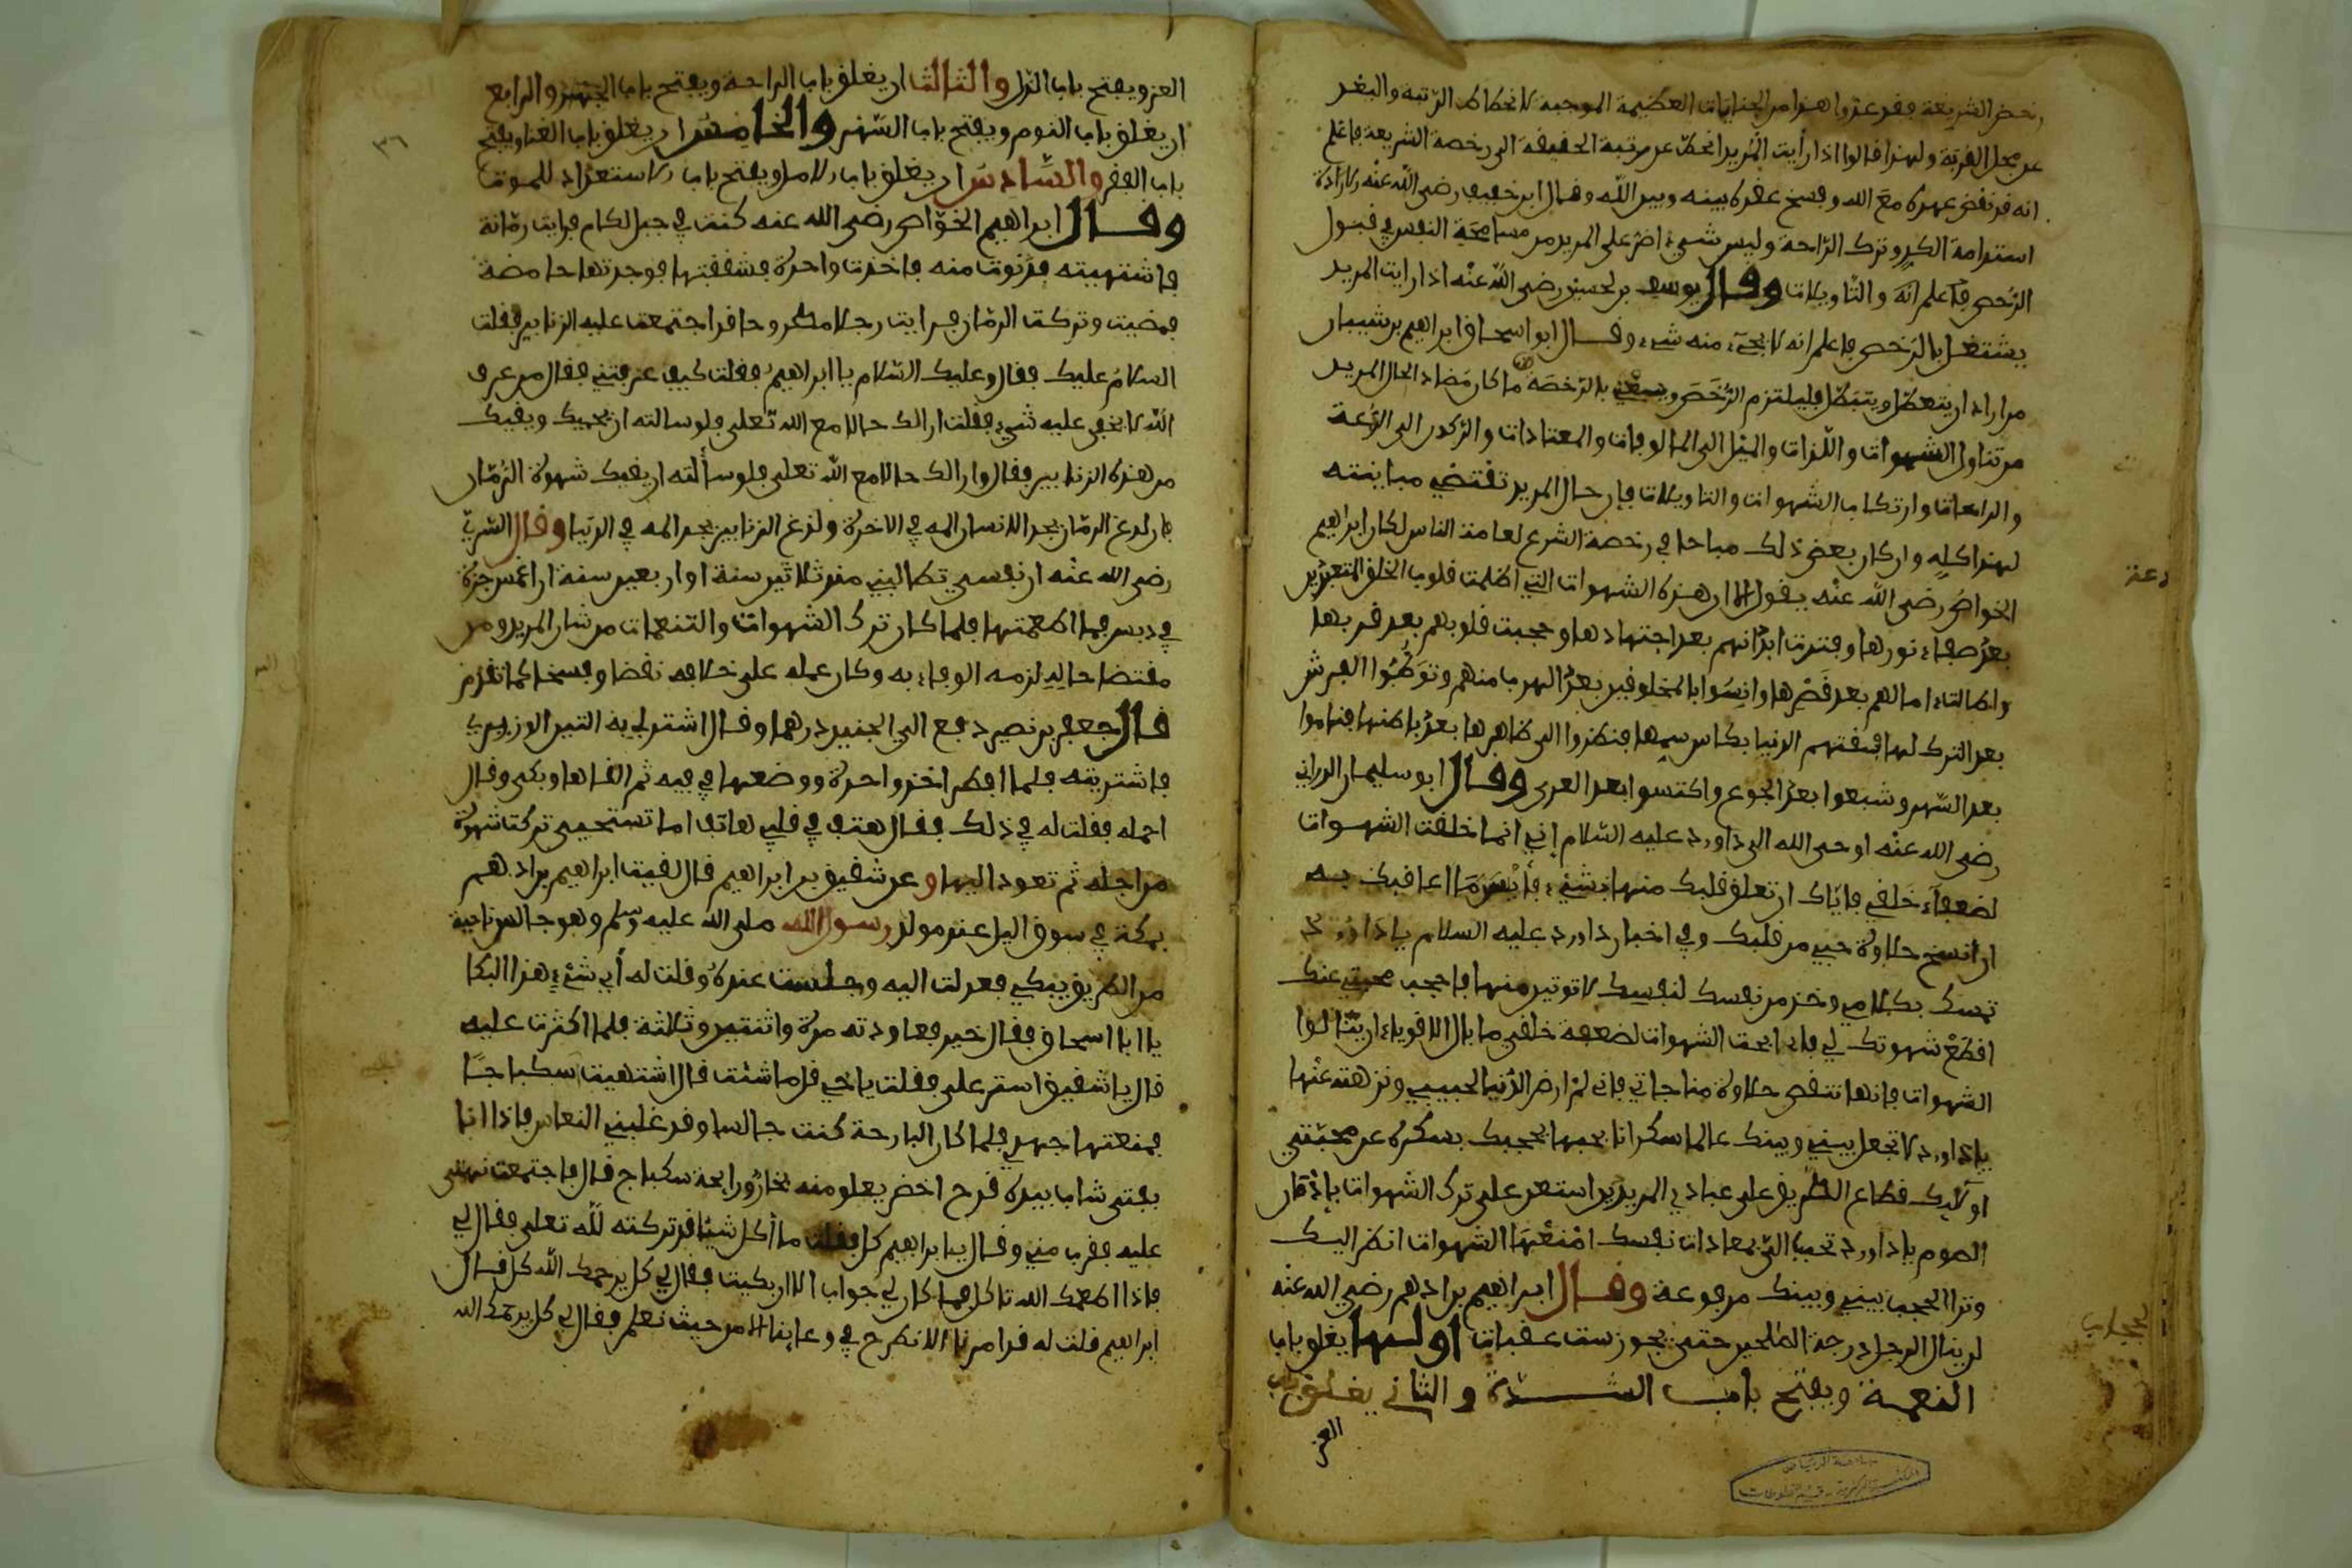 رخص الشريعة فقد عدوا هذا من الجنايات العظيمة الموجبة لانحطاط الرتبة والبعد
عن محل القربة ولهذا قالوا اذا رأيت المريد انحط عن مرتبة الحقيقة الى رخصة الشريعة فاعلم
انه قد نقض عهده مع الله وفسخ عقده بينه وبين الله وقال ابن خفيف رضى الله عنه الارادة
استدامة الكد وترك الراحة وليس شيء اضر على المريد من مسامحة النفس في قبول
الرخص فاعلم انه والتاويلات وقال يوسف بن لحسين رضى الله عنه اذا رايت المريد
يشتغل بالرخص فاعلم انه لا يجيء منه شيء وقال ابو اسحاق ابراهيم بن شيبان
من اراد ان يتعطل ويتبطل فليلتزم الرخص بالرخصة ما كان مضادا لحال المريد
من تناول الشهوات واللذات والميل الى المالوفات والمعتادات والركون الى الدعة
والراحات وارتكاب الشهوات والتاويلات فإن حال المريد تقتضي مباينته
لهذا كله وان كان بعض ذلك مباحا في رخصة الشرع لعامة الناس لكان ابراهيم
الخواص رضى الله عنه يقول الا ان هذه الشهوات التي اظلمت قلوب الخلق المتعبدين
بعد صفاء نورها وفترت ابدانهم بعد اجتهادها وحجبت قلوبهم بعد قربها
واطالت امالهم بعد قصرها وانسوا بالمخلوقين بعد الهرب منهم وتوطئوا الفرش
بعد الترك لها فسقتهم الدنيا بكاس سمها فنظروا الى ظاهرها بعد باطنها فناموا
بعد السهر وشبعوا بعد الجوع واكتسوا بعد العرى وقال ابو سليمان الدراني
رضى الله عنه اوحى الله الى داوود عليه السلام إني انما خلقت الشهوات
لضعفاء خلقي فاياك ان تعلق قلبك منها بشيء فأيسر ما اعاقبك به
ان انسخ حلاوة حبي من قلبك وفي اخبار داوود عليه السلام يا داوود
تمسك بكلامي وخذ من نفسك لنفسك لا توتين منها فاحجب محبتي عنك
اقطع شهوتك لي فاني ابحت الشهوات لضعفة خلقي ما بال الاقوياء ان ينالوا
الشهوات فانها تنقص حلاوة مناجاتي فاني لم ارض الدنيا لحبيبي ونزهته عنها
يا داوود لا تجعل بيني وبينك عالما سكرانا بحبها يحجبك بسكره عن محبتي
اولايك قطاع الطريق على عبادي المريدين استعن على ترك الشهوات بإدمان
الصوم يا داوود تحبب الي بمعادات نفسك امنعها الشهوات انظر اليك
وترا الحجب بيني وبينك مرفوعة وقال ابراهيم بن ادهم رضي الله عنه
لن ينال الرجل درجة الصلحين حتى يجوز ست عقبات اولها يغلق باب
النعمة ويفتح باب الشدة والثاني يغلق باب
العز
دعة
العز ويفتح باب الذل والثالث ان يغلق باب الراحة ويفتح باب الجهد والرابع
ان يغلق باب النوم ويفتح باب السهر والخامس ان يغلق باب الغنا ويفتح
باب الفقر والسادس ان يغلق باب الامل ويفتح باب الاستعداد للموت
وقال ابراهيم الخواص رضى الله عنه كنت في جبل لكام فرايت رمانة
فاشتهيته فدنوت منه فاخذت واحدة فشققتها فوجدتها حامضة
فمضيت وتركت الرمان فرايت رجلا مطروحا قد اجتمعت عليه الزنابير فقلت
السلام عليك فقال وعليك السلام يا ابراهيم فقلت كيف عرفتني فقال من عرف
الله لا يخفى عليه شيء فقلت ارا لك حالا مع الله تعلى فلو سالته ان يحميك ويقيك
من هذه الزنابير فقال وارا لك حالا مع الله تعلى فلو سألته ان يقيك شهوة الرمان
فان لدغ الرمان يجد الانسان المه في الاخرة ولدغ الزنابير يجد المه في الدنيا وقال السري
رضى الله عنه ان نفسي تطالبني منذ ثلاثين سنة او اربعين سنة ان اغمس جزرة
في دبس فما اطعمتها فلما كان ترك الشهوات والتنعمات من شان المريد ومن
مقتضا حاله لزمه الوفاء به وكان عمله على خلافه نقضا وفسخا كما تقدم
قال جعفر بن نصير دفع الي الجنيد درهما وقال اشتر لي به التين الوزيري
فاشتريته فلما افطر اخذ واحدة ووضعها في فيه ثم القاها وبكى وقال
احمله فقلت له في ذلك فقال هتف في قلبي هاتف اما تستحيي تركت شهوة
من اجله ثم تعود اليها وعن شقيق بن ابراهيم قال لقيت ابراهيم بن ادهم
بمكة في سوق اليل عند مولد رسول الله صلى الله عليه وسلم وهو جالس ناحية
من الطريق يبكي فعدلت اليه وجلست عنده وقلت له أي شيء هذا البكا
يا ابا اسحاق فقال خير فعاودته مرة واثنتين وثلاثة فلما اكثرت عليه
قال يا شقيق استر على فقلت يا خي قل ما شئت قال اشتهيت سكباجا
فمنعتها جهدي فلما كان البارحة كنت جالسا وقد غلبني النعاس فاذا انا
بفتى شاب بيده قدح اخضر يعلو منه بخار ورايحة سكباج قال فاجتمعت نهمتى
عليه فقرب مني وقال يا ابراهيم كل فقلت ما أكل شيئا قد تركته لله تعلى فقال لي
فاذا اطعمك الله تاكل فما كان لي جواب الا ان بكيت فقال لي كل يرحمك الله كل قال
ابراهيم قلت له قد امرنا الا نطرح في وعاينا الا من حيث نعلم فقال لي كل يرحمك الله
٣٦